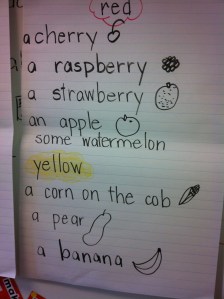 red
a cherry
a raspberry
a strawberry
an apple
some watermelon
yellow
a corn on the cob
a pear
a banana